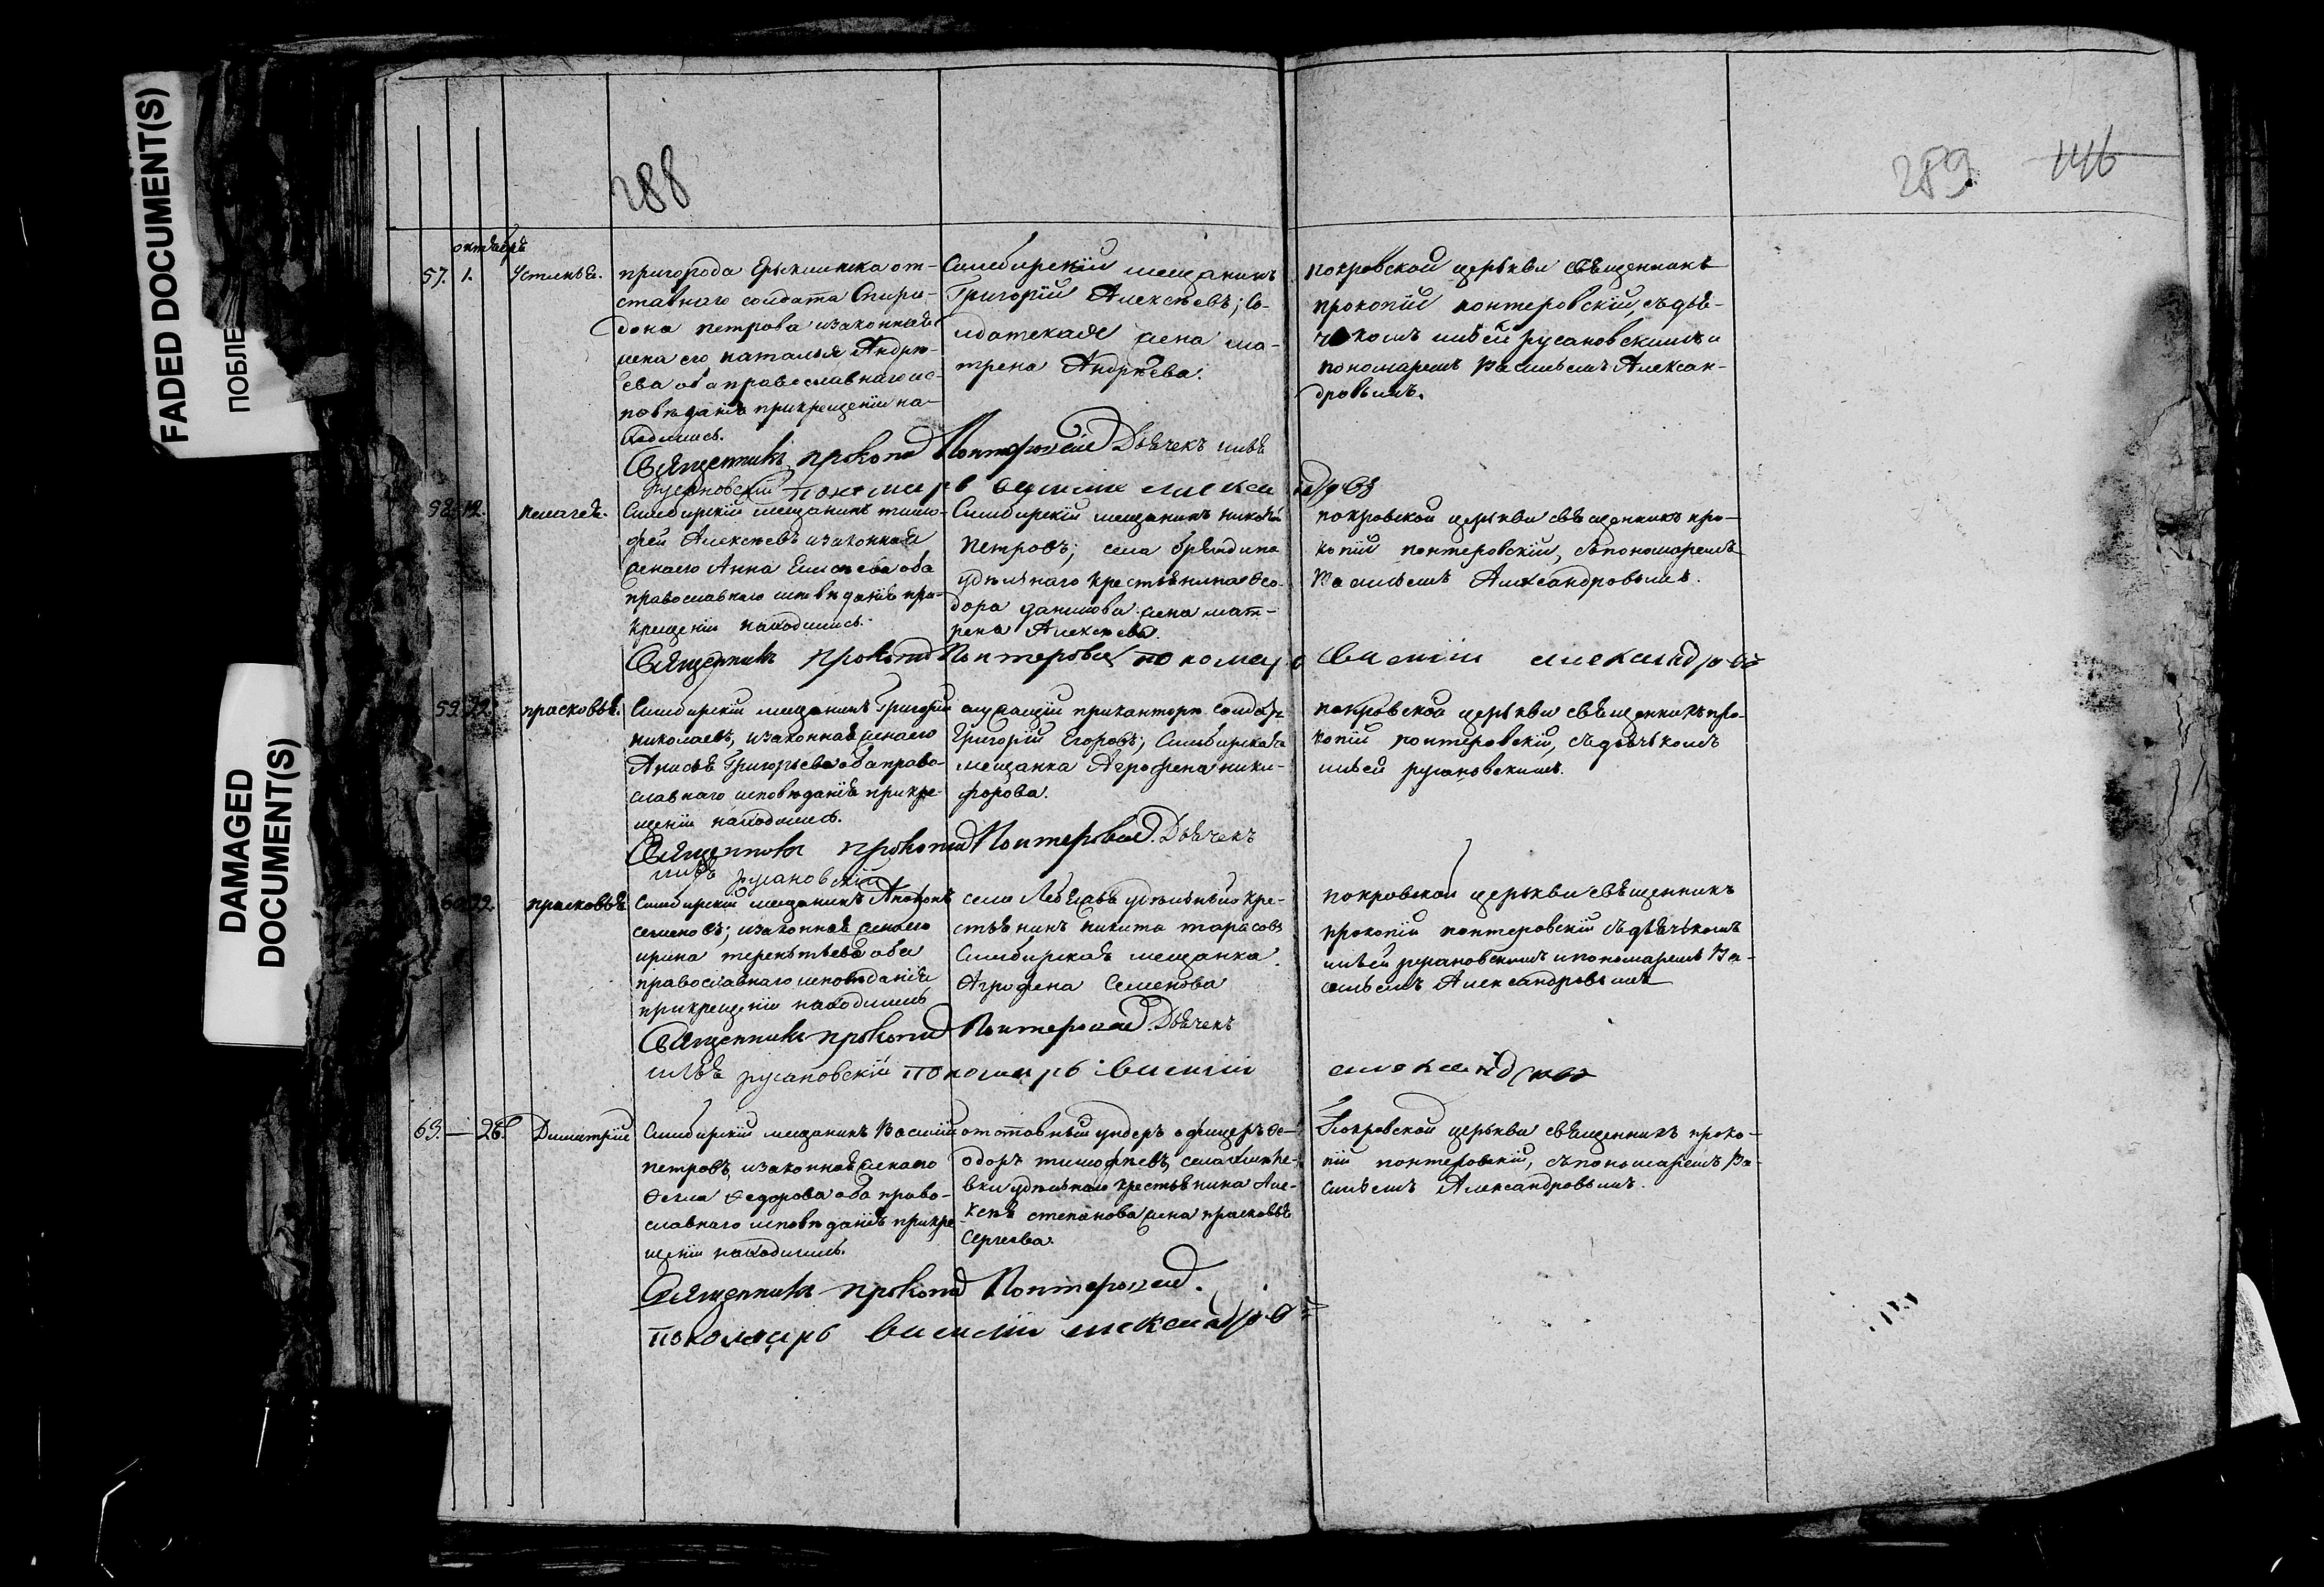 FADED DOCUMENT(S)
ПОБЛЕ
DAMAGED
DOCUMENT(S)
288
289 146
октябрь
57. 1. Устинья.
пригорода Ерыклинска от-
ставнаго солдата Спири-
дона петрова изаконная
жена его наталья Андре-
ева оба православнаго ис-
поведания прикрещении на-
ходились.
Симбирский мещанинъ
Григорий Алексеевъ; со-
лдатская жена ма-
трена Андреева.
покровской церькви священникъ
прокопий понтеровский, съ дья-
чкомъ ильей русановскимъ и
пономаремъ Васильемъ Алексан-
дровымъ.
Священникъ прокопий Понтеровский Дьячекъ илья
Русановский пономарь василий александровъ
58. 12. пелагея.
Симбирский мещанинъ тимо-
фей Алексеевъ изаконная
женаего Анна Елисеева оба
православнаго исповедания при-
крещении находились.
Симбирский мещанинъ николай
Петровъ; села брандина
удельнаго крестьянина Фео-
дора данилова жена мат-
рена Алексеева.
покровской церькви священникъ про-
копий понтеровский, съпономаремъ
Васильемъ Александровымъ.
Священникъ прокопий Понтеровский пономарь василий александровъ
59. 22. прасковья.
Симбирский мещанинъ Григорий
николаевъ, изаконная женаего
Анисья Григорьева оба право-
славнаго исповедания прикре-
щении находились.
служащий приканторе солдатъ
Григорий Егоровъ; Симбирская
мещанка Агрофена ники-
форова.
покровской церькви священникъ про-
копий понтеровский, съдьячькомъ
ильей русановскимъ.
Священникъ прокопий Понтеровский. Дьячекъ
илья русановский
60. 22. прасковья
Симбирский мещанинъ
семеновъ; изаконная женаего
ирина терентьева оба
православнаго исповедания
прикрещении находились
села удельный кре-
стьянинъ никита тарасовъ
Симбирская мещанка
Агрофена Семенова
покровской церькви священникъ
прокопий понтеровский съдьячькомъ
ильей русановскимъ ипономаремъ Ва-
сильемъ Александровымъ
Священникъ прокопий Понтеровский. Дьячекъ
илья русановский пономарь василий александровъ
— 26. Димитрий
Симбирский мещанинъ Василий
петровъ, изаконная женаего
Федорова оба право-
славнаго исповедания прикре
щении находились.
отставный ундеръ офицеръ Фе-
одоръ тимофеевъ, села
вки удельнаго крестьянина Але-
ксея степанова жена прасковья
Сергеева.
Покровской церькви священникъ проко-
пий понтеровский, съпономаремъ Ва-
сильемъ Александровымъ.
Священникъ прокопий Понтеровский.
пономарь василий александровъ